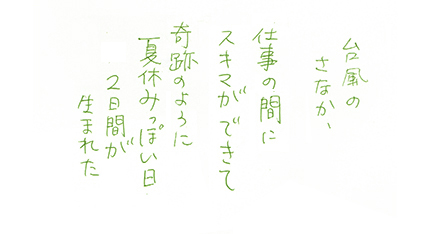 台風の
さなか、
仕事の間に
スキマができて
奇跡のように
夏休みっぽい日
2日間が
生まれた